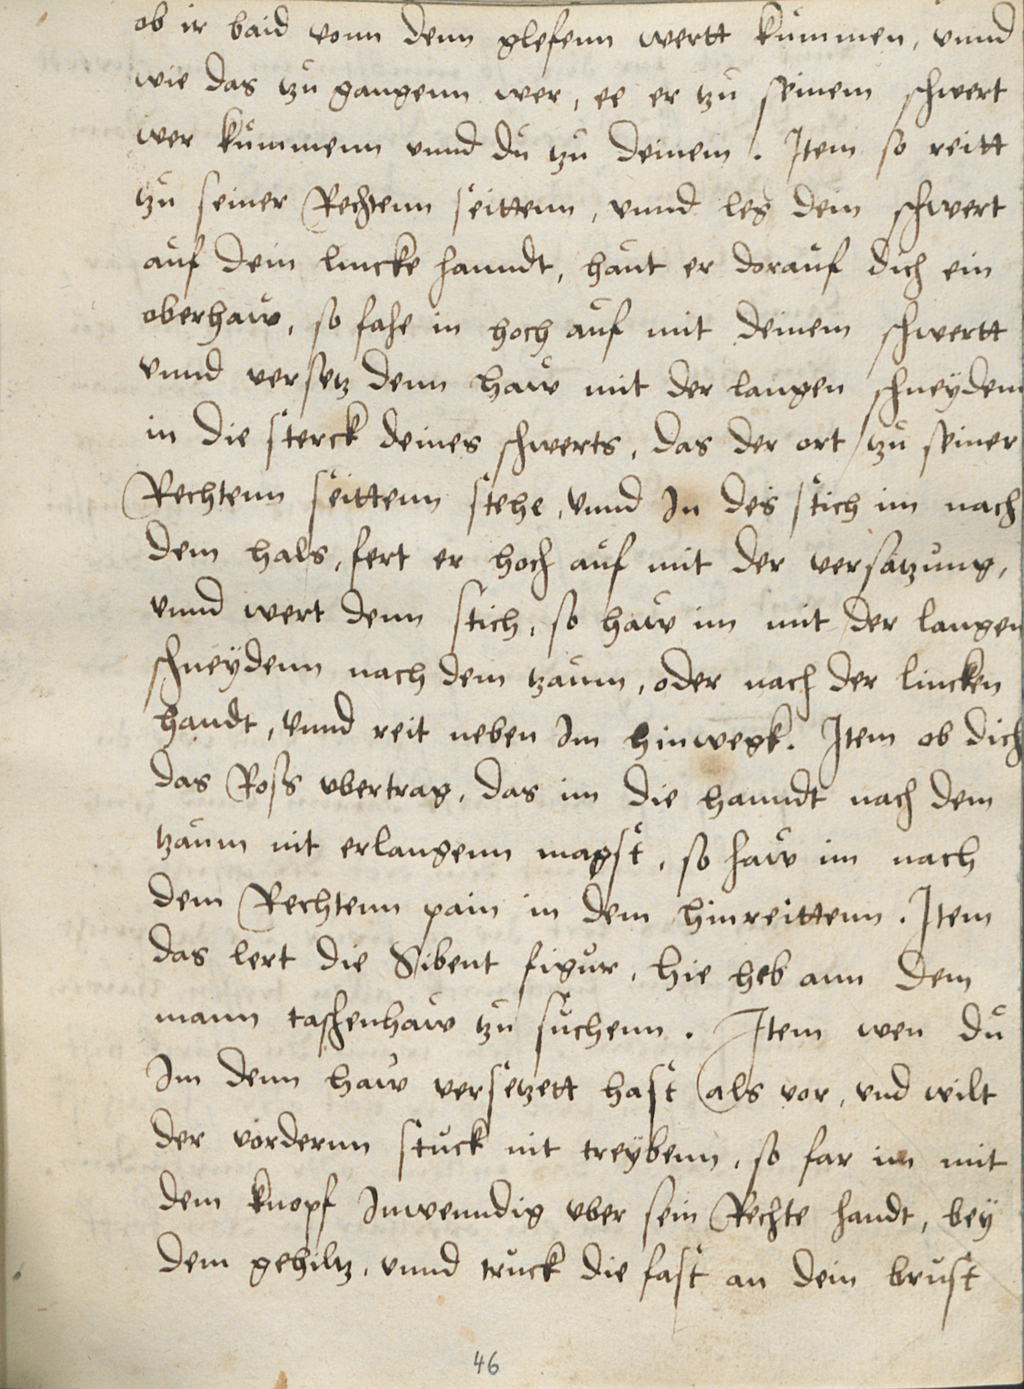 ob ir baid vonn denn glefenn wertt kummen, vnnd
wie das tzu gangenn wer, ee er tzu seinem schwert
wer kummenn vnnd du tzu deinem. Item so reitt
tzu seiner Rechtenn seittenn, vnnd leg dein schwert
auf dein lincke hanndt, haut er dorauf dich ein
oberhaw, so fahe in hoch auf mit deinem schwertt
vnnd versetz denn haw mit der langen schneyden
in die sterck deines schwerts, das der ort tzu seiner
Rechtenn seittenn stehe, vnnd In des stich im nach
dem hals, fert er hoch auf mit der versatzung,
vnnd wert denn stich, so haw im mit der langen
schneydenn nach dem tzaum, oder nach der lincken
handt, vnnd reit neben Im hinwegk. Item ob dich
das Ross vbertrag, das im die hanndt nach dem
tzaum nit erlangenn magst, so haw im nach
dem Rechtenn pain in dem hinreittenn. Item
das lert die Sibent figur, hie heb ann dem
mann taschenhaw tzu suchenn. Item wen du
Im denn haw versetzett hast als vor, vnd wilt
der vordernn stuck nit treybenn, so far im mit
dem knopf Inwenndig vber sein Rechte handt, bey
dem gehiltz, vnnd truck die fast an dein brust
46